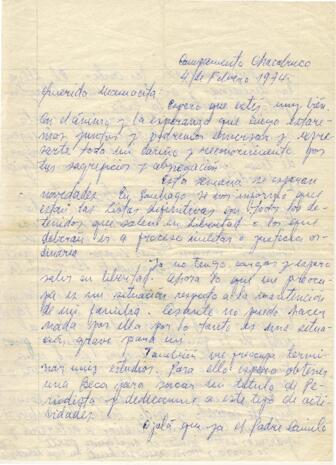 Campamento Chacabuco
4 de Febrero 1974.
Querida Mamacita:
Espero que estés muy bien
en el ánimo y la esperanza que luego estare-
mos juntos y podremos conversar y expre-
sarte todo mi cariño y reconocimiento por
tus sacrificios y abnegación.
Esta semana se esperan
novedades. En Santiago se nos informó que
están las listas definitivas con todos los de-
tenidos que salen en libertad o los que
deberán ir a proceso militar o justicia or-
dinaria.
Yo no tengo cargos y espero
salir en libertad. Ahora lo que me preocu-
pa es mi situación respecto a la mantención
de mi familia. Cesante no puedo hacer
nada por ella por lo tanto es una situa-
ción grave para mí.
También me preocupa termi-
nar mis estudios. Para ello espero obtener
una Beca para sacar mi título de Pe-
riodista y dedicarme a este tipo de acti-
vidades.
Ojalá que ya el Padre Camilo